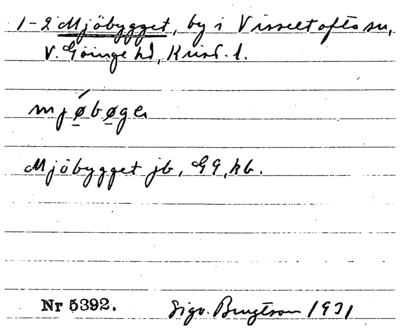 1-2 Mjöbygget, by i Visseltofta sn,
V. Göinge hd, Krist. l.
mjøbøge
Mjöbygget jb, GG, hb.
Nr 5392. Sigv. Bengtson 1931